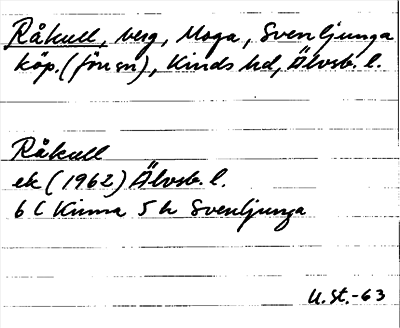 Råkull, berg, Moga, Svenljunga
köp. (förs n), Kinds hd, Älvsb. l.
Råkull
ek (1962) Älvsb. l.
6 C Kinna 5 h Svenljunga
U. St. -63